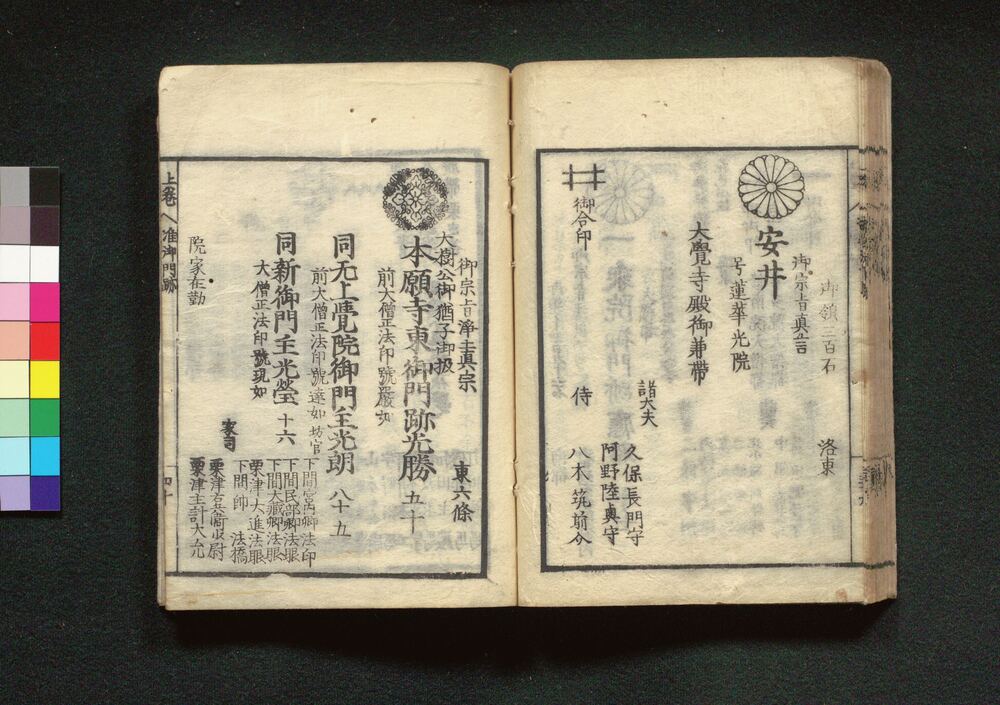 御領三百石
洛東
御宗旨真言
安井
号蓮華光院
大覺寺殿御兼帶
諸大夫
久保長門守
阿野陸奥守
侍
八木筑前介
御合印
御宗旨浄土真宗
東六條
大樹公御猶子御扱
本願寺東御門跡光勝 五十
前大僧正法印號嚴如
同无上覺院御門主光朗 八十五
前大僧正法印號達如
坊官
下間宮内卿法印
下間民部卿法眼
下間大藏卿法眼
同新御門主光瑩 十六
大僧正法印號現如
粟津大進法眼
下間帥法橋
家司
粟津右兵衛大尉
粟津主計大允
院家在勤
上巻
准御門跡
四十